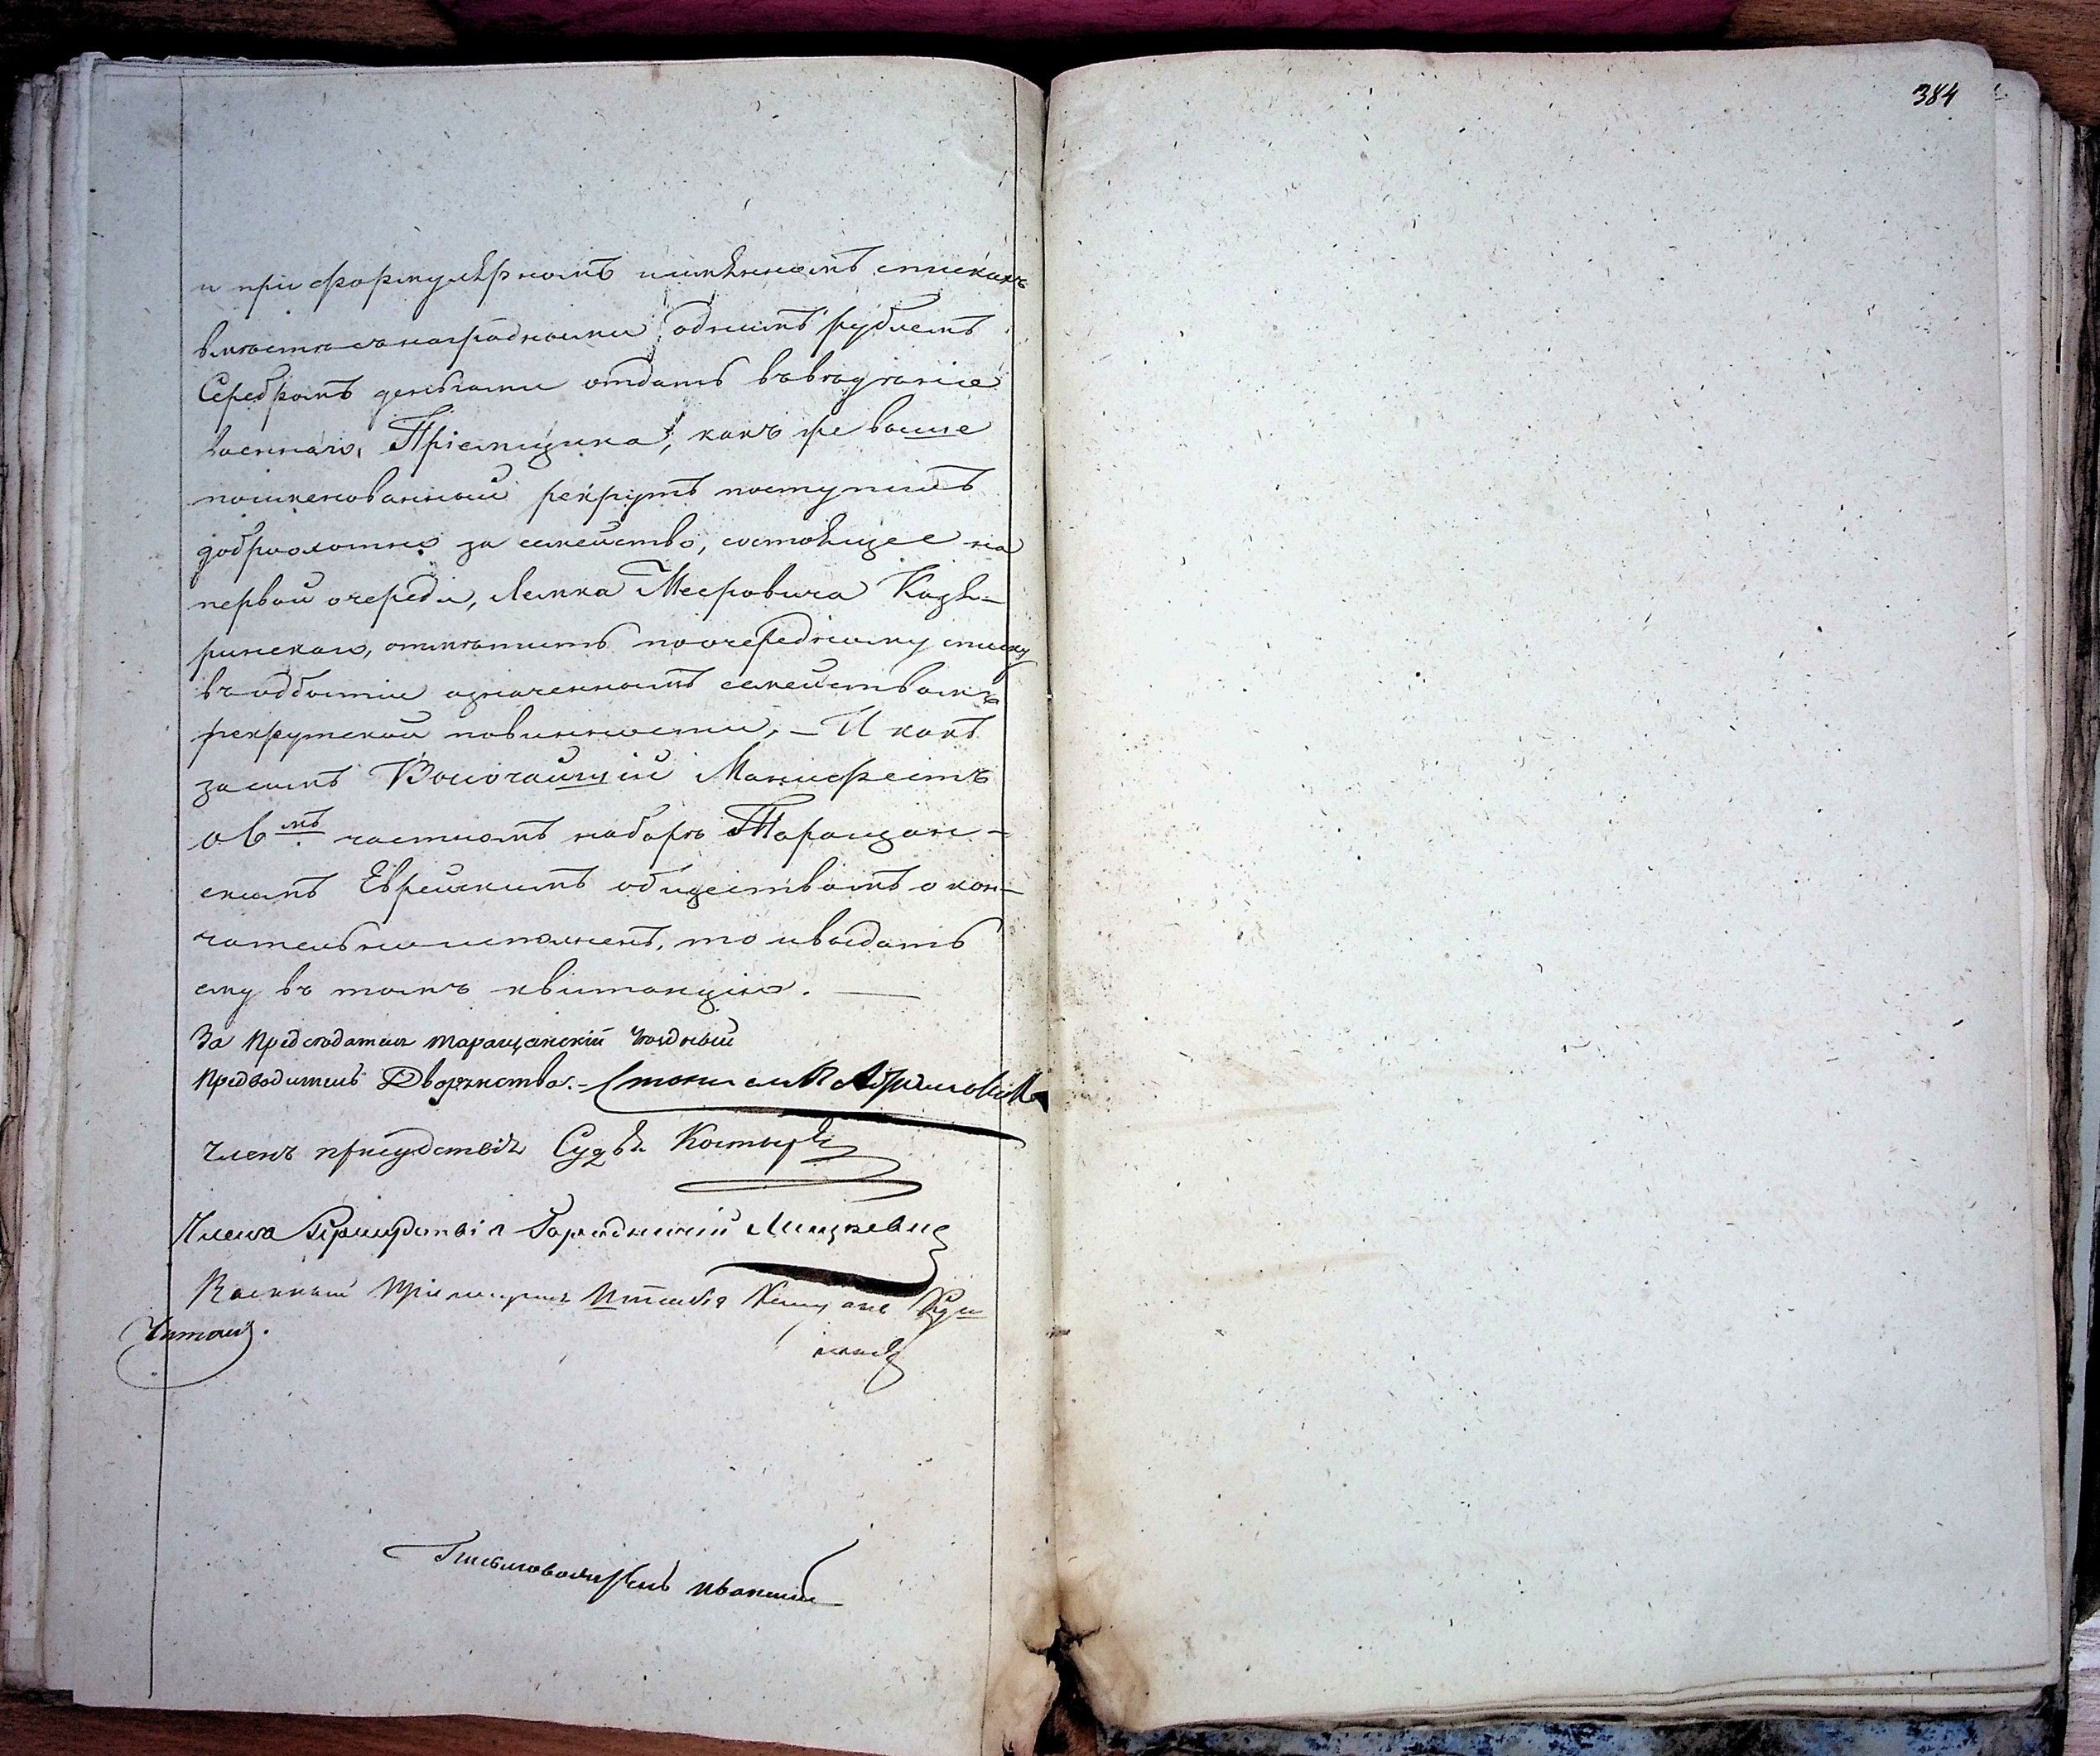 384
и при формулярномъ именномъ спискахъ
вместе съ наградными однимъ рублемъ
Серебромъ деньгами отдать въ ведение
военнаго Приемщика, какъ же выше
поименованный рекрутъ поступилъ
доброохотно за семейство, состоящее на
первой очереди, Лемка Мееровича Кодя-
ринскаго, отметить по очередному списку
въ отбытии означеннымъ семействомъ
рекрутской повинности, — И какъ
за симъ Высочайший Манифестъ
о 6мъ частномъ наборе Таращан-
скимъ Еврейскимъ обществомъ окон-
чательно исполненъ, то и выдать
ему въ томъ квитанцию. —
За Председателя Таращанский Уездный
Предводитель Дворянства. –
Членъ присудствия Судья Костыря
Членъ Присудствия Городничий
Военный Приемщикъ
Читалъ.
Письмоводитель